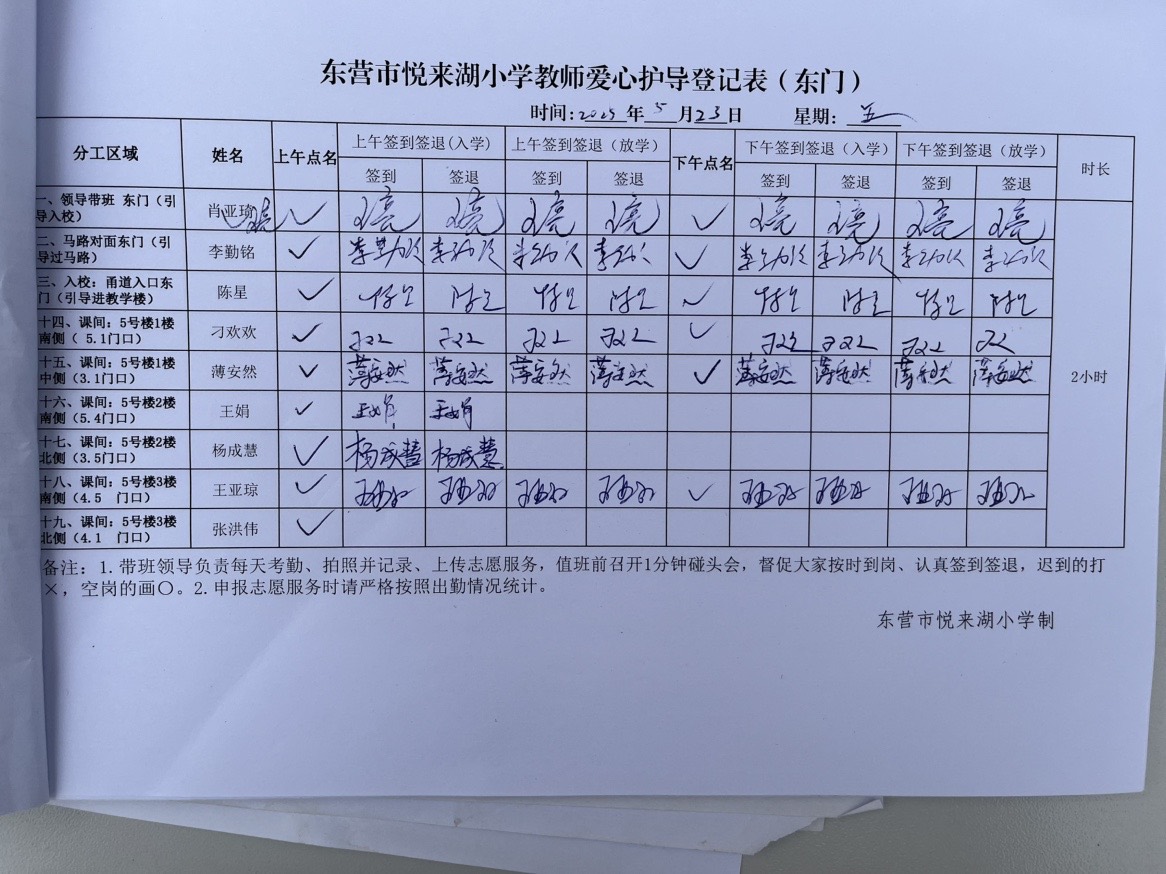 东营市悦来湖小学教师爱心护导登记表（东门）
时间:2025年5月23日 星期:五
分工区域 姓名 上午点名 上午签到签退(入学) 上午签到签退（放学） 下午点名 下午签到签退（入学） 下午签到签退（放学） 时长
签到 签退 签到 签退 签到 签退 签到 签退
一、领导带班 东门（引导入校） 肖亚琦 ✓ ✓
二、马路对面东门（引导过马路） 李勤铭 ✓ ✓
三、入校：甬道入口东门（引导进教学楼） 陈星 ✓ 陈星 陈星 陈星 陈星 ✓ 陈星 陈星 陈星 陈星
十四、课间：5号楼1楼南侧（ 5.1门口） 刁欢欢 ✓ 刁欢欢 刁欢欢 刁欢欢 刁欢欢 ✓ 刁欢欢 刁欢欢 刁欢欢 刁欢
十五、课间：5号楼1楼中侧（3.1门口） 薄安然 ✓ 薄安然 薄安然 薄安然 薄安然 ✓ 薄安然 薄安然 薄安然 薄安然 2小时
十六、课间：5号楼2楼南侧（5.4门口） 王娟 ✓ 王娟 王娟
十七、课间：5号楼2楼北侧（3.5门口） 杨成慧 ✓ 杨成慧 杨成慧
十八、课间：5号楼3楼南侧（4.5 门口） 王亚琼 ✓ 王亚琼 王亚琼 王亚琼 王亚琼 ✓ 王亚琼 王亚琼 王亚琼 王亚琼
十九、课间：5号楼3楼北侧（4.1 门口） 张洪伟 ✓
备注：1.带班领导负责每天考勤、拍照并记录、上传志愿服务，值班前召开1分钟碰头会，督促大家按时到岗、认真签到签退，迟到的打
×，空岗的画〇。2.申报志愿服务时请严格按照出勤情况统计。
东营市悦来湖小学制